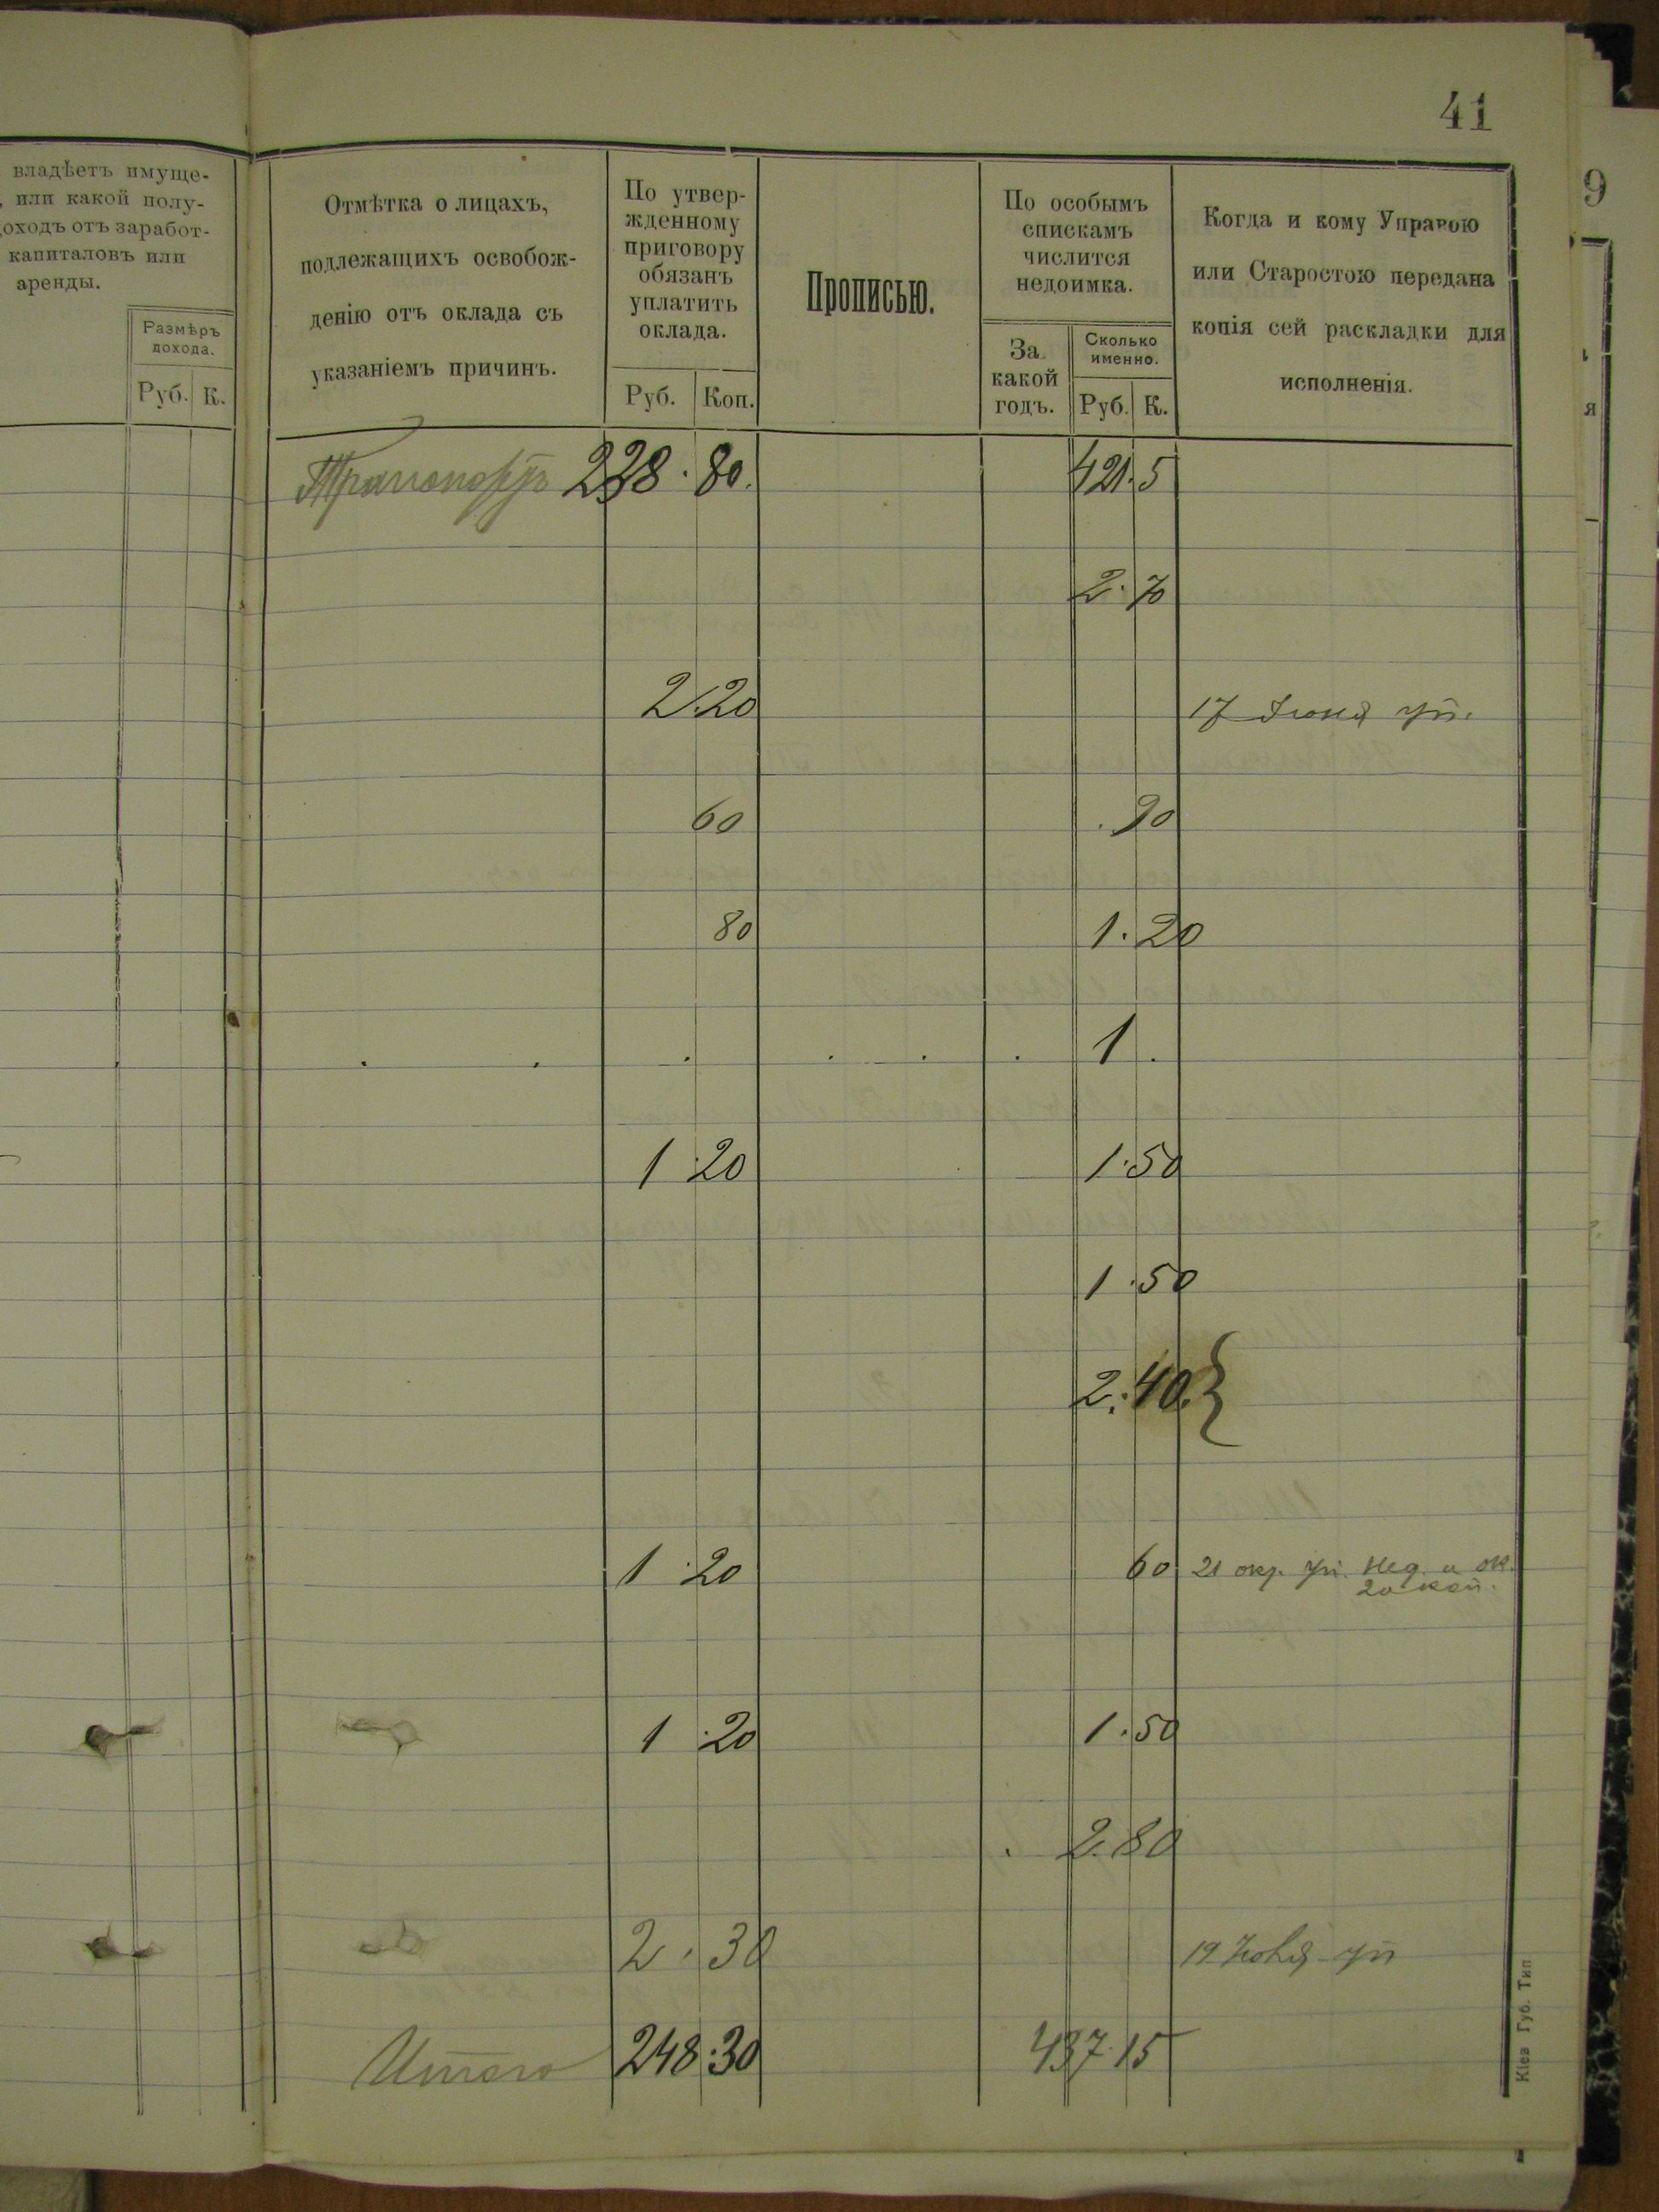 41
9
владѣетъ имуще-
, или какой полу-
оходъ отъ заработ-
капиталовъ или
аренды.
Размѣръ
дохода.
Руб. К.
Отмѣтка о лицахъ,
подлежащихъ освобож-
денію отъ оклада съ
указаніемъ причинъ.
По утвер-
жденному
приговору
обязанъ
уплатить
оклада.
Руб. Коп.
Прописью.
По особымъ
спискамъ
числится
недоимка.
За
какой
годъ.
Сколько
именно.
Руб. К.
Когда и кому Управою
или Старостою передана
копія сей раскладки для
исполненія.
я
Транспортъ 228.80. 421.5
2.70
2.20 17 Июня уп.
60 .90
80 1.20
1.
1.20 1.50
1.50
2.40.
1.20 60 21 окт. уп. нед. и ок.
20 коп.
1.20 1.50
2.80
2.30 19 Июня уп
Итого 248.30 437.15
Кіев Губ. Тип